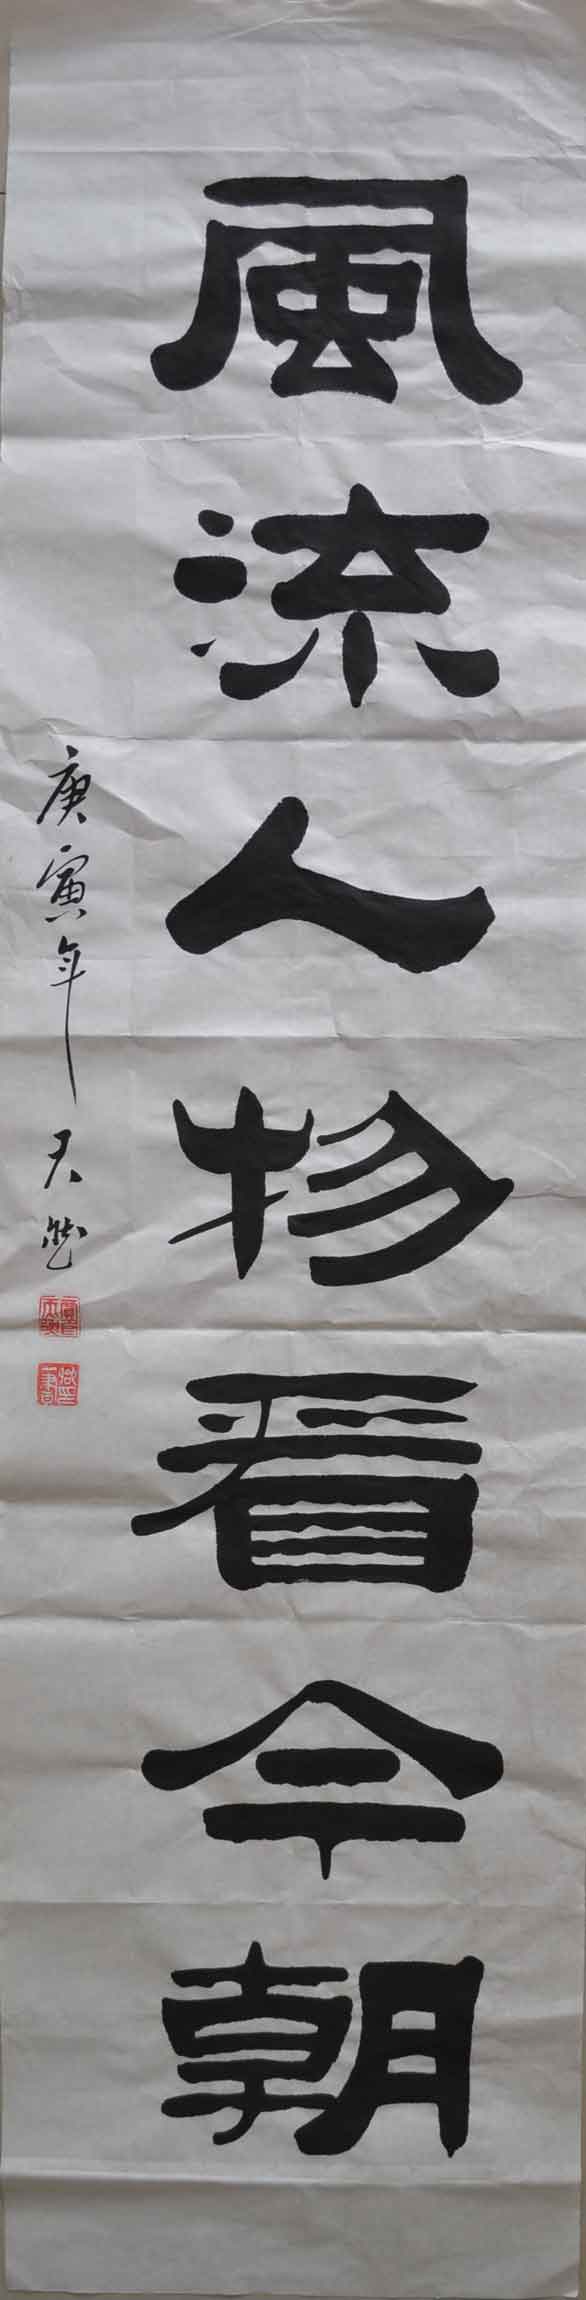 風流人物看今朝
庚寅年 天然